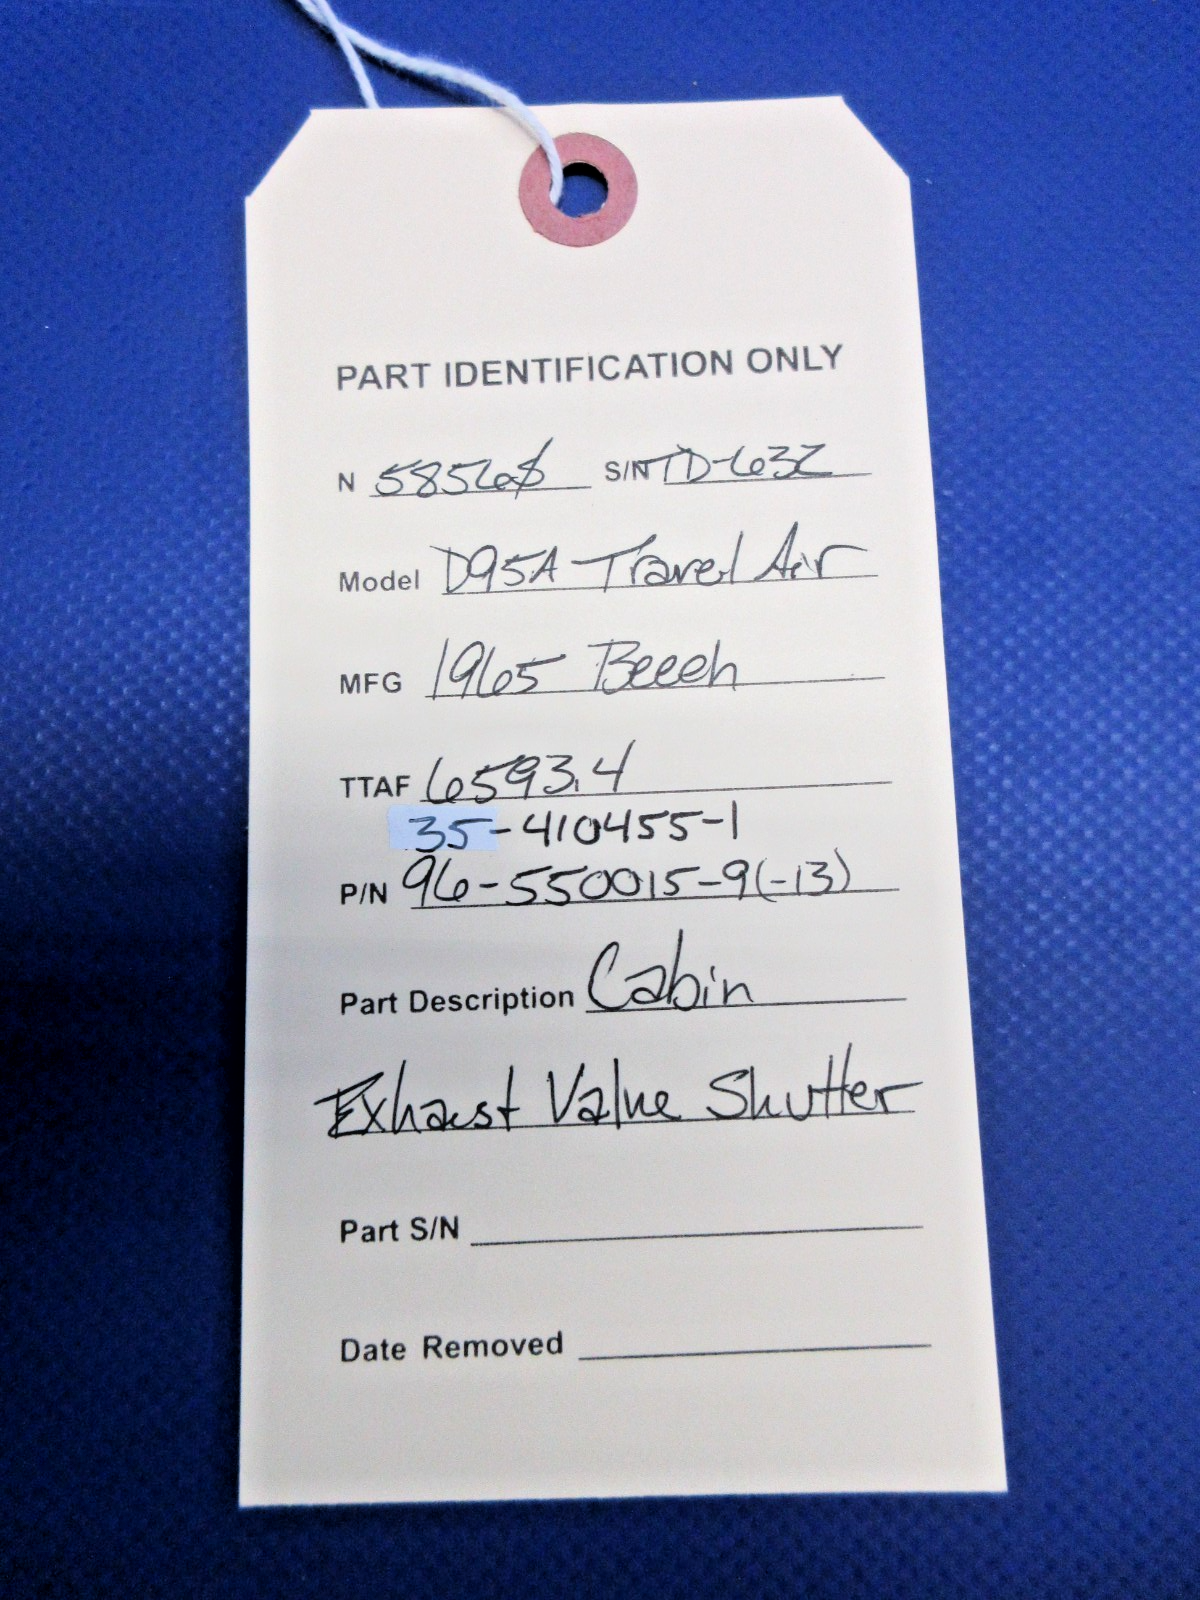 PART IDENTIFICATION ONLY
N 5856Ø S/N TD-632
Model D95A Travel Air
MFG 1965 Beech
TTAF 6593.4
35-410455-1
P/N 96-550015-9(-13)
Part Description Cabin
Exhaust Valve Shutter
Part S/N
Date Removed